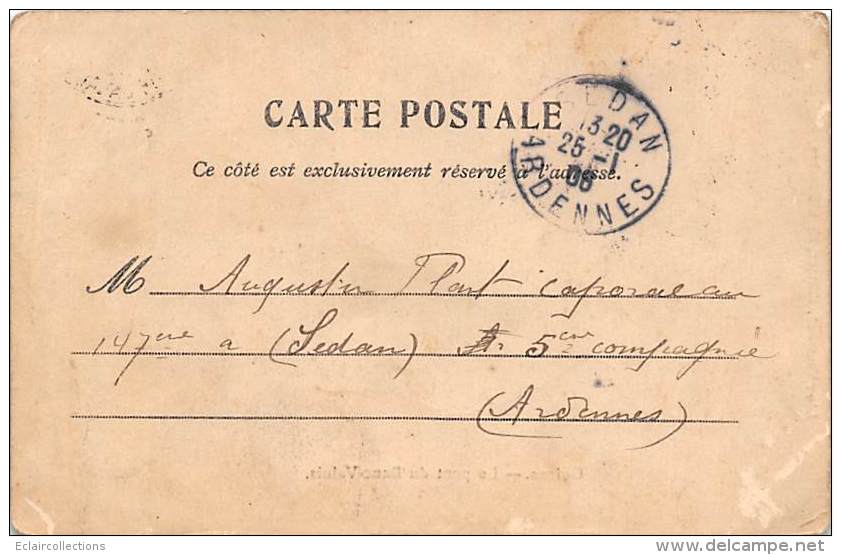 CARTE POSTALE
Ce côté est exclusivement réservé à l'adresse.
SEDAN
13-20
25 -1
06
ARDENNES
M Augustin Plart Caporal au
147ème a (Sedan) 5ème compagnie
(Ardennes)
Eclaircollections
http://www.delcampe.net